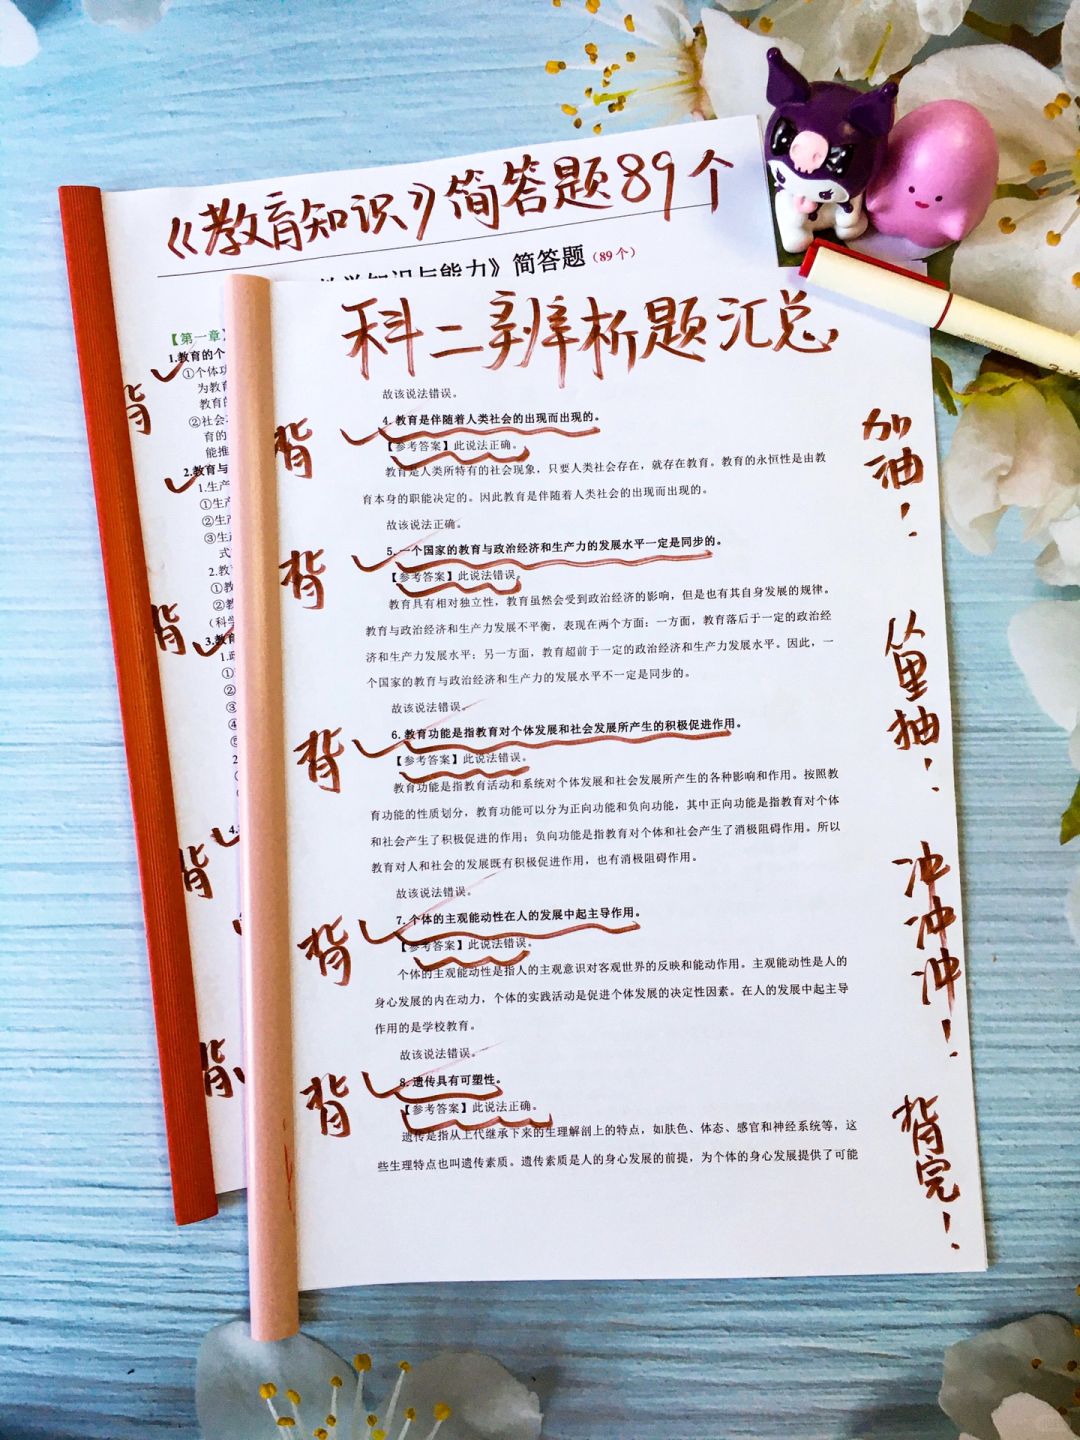 《教育知识》简答题89个
教学知识与能力》简答题(89个)
【第一章】
1.教育的个
①个体功
为教育
教育的
②社会
育的
能推
2.教育与
1.生产
①生产
②生产
③生产
式
2.教
①教
②教
(科学
3.教育
1.政
①
②
③
④
⑤
2
①
4.
背
背
背
背
科二辨析题汇总
故该说法错误。
4. 教育是伴随着人类社会的出现而出现的。
【参考答案】此说法正确。
教育是人类所特有的社会现象，只要人类社会存在，就存在教育。教育的永恒性是由教
育本身的职能决定的。因此教育是伴随着人类社会的出现而出现的。
故该说法正确。
5. 一个国家的教育与政治经济和生产力的发展水平一定是同步的。
【参考答案】此说法错误。
教育具有相对独立性，教育虽然会受到政治经济的影响，但是也有其自身发展的规律。
教育与政治经济和生产力发展不平衡，表现在两个方面：一方面，教育落后于一定的政治经
济和生产力发展水平；另一方面，教育超前于一定的政治经济和生产力发展水平。因此，一
个国家的教育与政治经济和生产力的发展水平不一定是同步的。
故该说法错误。
6. 教育功能是指教育对个体发展和社会发展所产生的积极促进作用。
【参考答案】此说法错误。
教育功能是指教育活动和系统对个体发展和社会发展所产生的各种影响和作用。按照教
育功能的性质划分，教育功能可以分为正向功能和负向功能，其中正向功能是指教育对个体
和社会产生了积极促进的作用；负向功能是指教育对个体和社会产生了消极阻碍作用。所以
教育对人和社会的发展既有积极促进作用，也有消极阻碍作用。
故该说法错误。
7. 个体的主观能动性在人的发展中起主导作用。
【参考答案】此说法错误。
个体的主观能动性是指人的主观意识对客观世界的反映和能动作用。主观能动性是人的
身心发展的内在动力，个体的实践活动是促进个体发展的决定性因素。在人的发展中起主导
作用的是学校教育。
故该说法错误。
8. 遗传具有可塑性。
【参考答案】此说法正确。
遗传是指从上代继承下来的生理解剖上的特点，如肤色、体态、感官和神经系统等，这
些生理特点也叫遗传素质。遗传素质是人的身心发展的前提，为个体的身心发展提供了可能
背
背
背
背
背
加油！
从里抽！
冲冲冲！
背完！